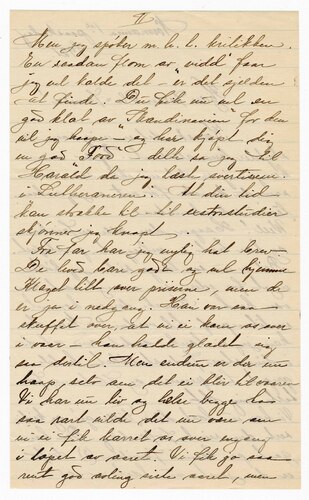 V
Men jeg spøker m. h. t. kritikken.
En saadan flom av vidd faar
jeg vel kalde det - er det sjelden
at finde. Du fik nu vel en
god klat av "Skandinavien" for den
vil jeg haape - og har kjøpt dig
en god "Ford" delte sa jeg til
Harald da jeg læst avertissem.
i Lutheraneren. At din tid
kan strække til
skjønner jeg knapt.
Fra far har jeg nylig hat brev -
De lived bare godt og vel hjemme
Meget tilt over priserne, men de
er jo i nedgang. Han var saa
skuffet over, at vi ei kom os over
i vaar - han hadde glædet sig
saa dertil. Men endnu er der jo
haap, selv om det ei blir til vaaren
Vi har nu liv og helse begge to
saa rart vilde det nu være om
vi ei fik karret os over engang
i løpet av aaret. Vi fik jo saa
rent god avling siste aaret, men